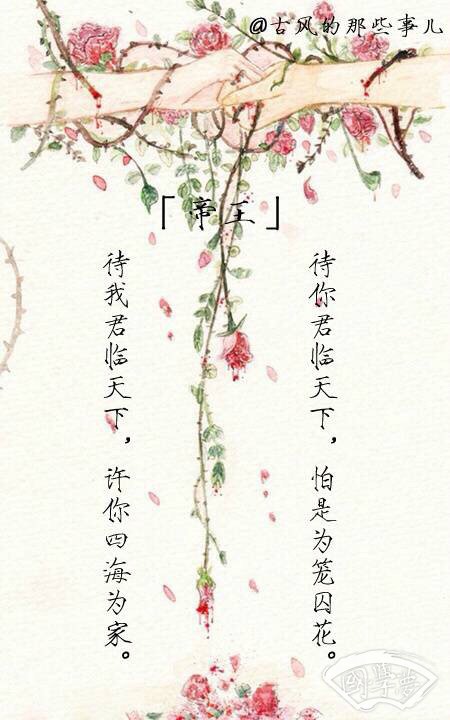 @古风的那些事儿
「帝王」
待我君临天下，许你四海为家。
待你君临天下，怕是为笼囚花。
國學夢